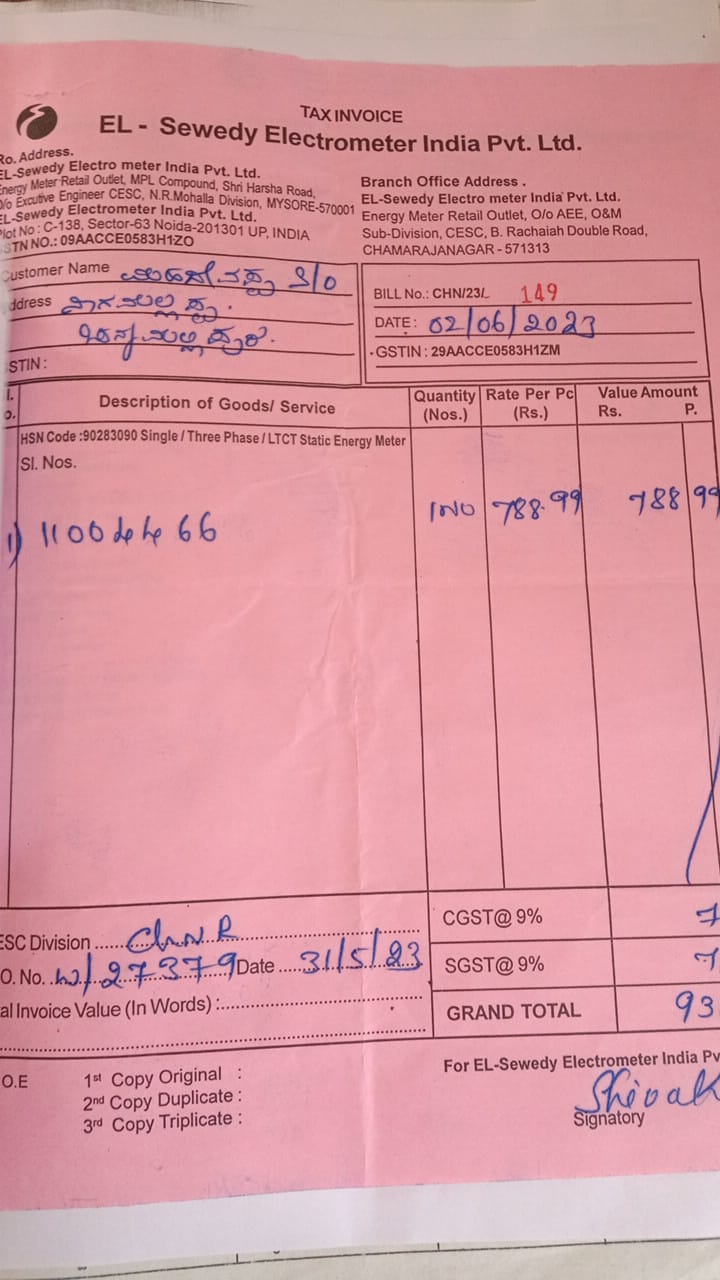 TAX INVOICE
EL - Sewedy Electrometer India Pvt. Ltd.
Ro. Address.
EL-Sewedy Electro meter India Pvt. Ltd.
Energy Meter Retail Outlet, MPL Compound, Shri Harsha Road,
/o Excutive Engineer CESC, N.R.Mohalla Division, MYSORE-570001
EL-Sewedy Electrometer India Pvt. Ltd.
Plot No : C-138, Sector-63 Noida-201301 UP, INDIA
STN NO.: 09AACCE0583H1ZO
Branch Office Address .
EL-Sewedy Electro meter India Pvt. Ltd.
Energy Meter Retail Outlet, O/o AEE, O&M
Sub-Division, CESC, B. Rachaiah Double Road,
CHAMARAJANAGAR - 571313
Customer Name S/o
ddress
STIN :
BILL No.: CHN/23/ 149
DATE : 02/06/2023
GSTIN : 29AACCE0583H1ZM
Description of Goods/ Service Quantity (Nos.) Rate Per Pc (Rs.) Value Amount Rs. P.
HSN Code :90283090 Single / Three Phase / LTCT Static Energy Meter
Sl. Nos.
1) 11004466 1NO 788.99 788 99
ESC Division ChNR
O. No. W/27379 Date 31/5/23
al Invoice Value (In Words) :
CGST@ 9% 7
SGST@ 9% 7
GRAND TOTAL 93
O.E
1st Copy Original :
2nd Copy Duplicate :
3rd Copy Triplicate :
For EL-Sewedy Electrometer India Pv
Shivak
Signatory